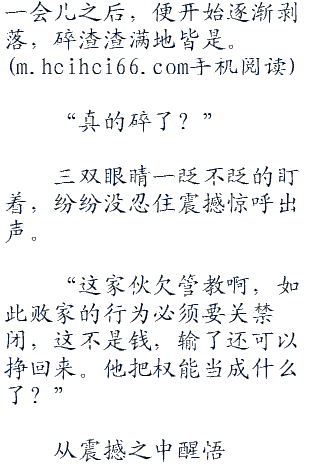 一会儿之后，便开始逐渐剥
落，碎渣渣满地皆是。
(m.hcihci66.com手机阅读)
“真的碎了？”
三双眼睛一眨不眨的盯
着，纷纷没忍住震撼惊呼出
声。
“这家伙欠管教啊，如
此败家的行为必须要关禁
闭，这不是钱，输了还可以
挣回来。他把权能当成什么
了？”
从震撼之中醒悟